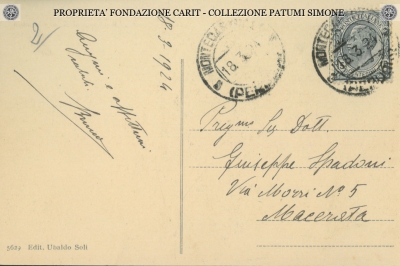 PROPRIETA' FONDAZIONE CARIT - COLLEZIONE PATUMI SIMONE
18.3.1924
Auguri e affettuosi
saluti
Bruno
MONTECAS
18.3.24
(PER
MONTECAS
18.3.24
Pregmo Sig Dott.
Giuseppe Spadoni
Via Morri Nº 5
Macerata
Edit. Ubaldo Soli